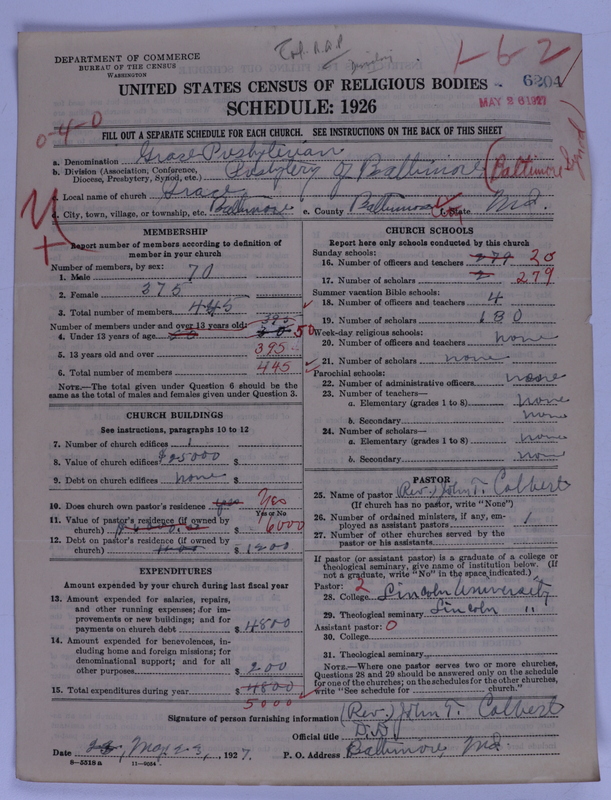 1-6-2
DEPARTMENT OF COMMERCE
BUREAU OF THE CENSUS
WASHINGTON
UNITED STATES CENSUS OF RELIGIOUS BODIES
6204
SCHEDULE: 1926
MAY 26 1927
0-4-0
FILL OUT A SEPARATE SCHEDULE FOR EACH CHURCH. SEE INSTRUCTIONS ON THE BACK OF THIS SHEET
a. Denomination Grace Presbyterian
b. Division (Association, Conference, Diocese, Presbytery, Synod, etc.) Presbytery of Baltimore (Baltimore Synod)
c. Local name of church Grace
d. City, town, village, or township, etc. Baltimore e. County Baltimore f. State Md.
MEMBERSHIP
Report number of members according to definition of
member in your church
Number of members, by sex:
1. Male 70
2. Female 375
3. Total number of members 445
Number of members under and over 13 years old: 395
4. Under 13 years of age 50 50 50
5. 13 years old and over 395
6. Total number of members 445
NOTE.—The total given under Question 6 should be the
same as the total of males and females given under Question 3.
CHURCH BUILDINGS
See instructions, paragraphs 10 to 12
7. Number of church edifices 1
8. Value of church edifices $25000 $
9. Debt on church edifices none $
10. Does church own pastor's residence yes Yes
Yes or No
11. Value of pastor's residence (if owned by
church) $ 6000
12. Debt on pastor's residence (if owned by
church) $ 1200
EXPENDITURES
Amount expended by your church during last fiscal year
13. Amount expended for salaries, repairs,
and other running expenses; for im-
provements or new buildings; and for
payments on church debt $ 4800
14. Amount expended for benevolences, in-
cluding home and foreign missions; for
denominational support; and for all
other purposes $ 200
15. Total expenditures during year $ 4800
5000
CHURCH SCHOOLS
Report here only schools conducted by this church
Sunday schools:
16. Number of officers and teachers 279 20
17. Number of scholars 279
Summer vacation Bible schools:
18. Number of officers and teachers 4
19. Number of scholars 180
Week-day religious schools:
20. Number of officers and teachers none
21. Number of scholars none
Parochial schools:
22. Number of administrative officers none
23. Number of teachers—
a. Elementary (grades 1 to 8) none
b. Secondary none
24. Number of scholars—
a. Elementary (grades 1 to 8) none
b. Secondary none
PASTOR
25. Name of pastor (Rev.) John T. Colbert
(If church has no pastor, write "None")
26. Number of ordained ministers, if any, em-
ployed as assistant pastors 1
27. Number of other churches served by the
pastor or his assistants
If pastor (or assistant pastor) is a graduate of a college or
theological seminary, give name of institution below. (If
not a graduate, write "No" in the space indicated.)
Pastor: 2
28. College Lincoln University
29. Theological seminary Lincoln "
Assistant pastor: 0
30. College
31. Theological seminary
NOTE.—Where one pastor serves two or more churches,
Questions 28 and 29 should be answered only on the schedule
for one of the churches; on the schedules for the other churches,
write "See schedule for church."
Signature of person furnishing information (Rev.) John T. Colbert
Official title D.D.
Date May 23, 1927. P. O. Address Baltimore, Md.
8-5518a 11-9054